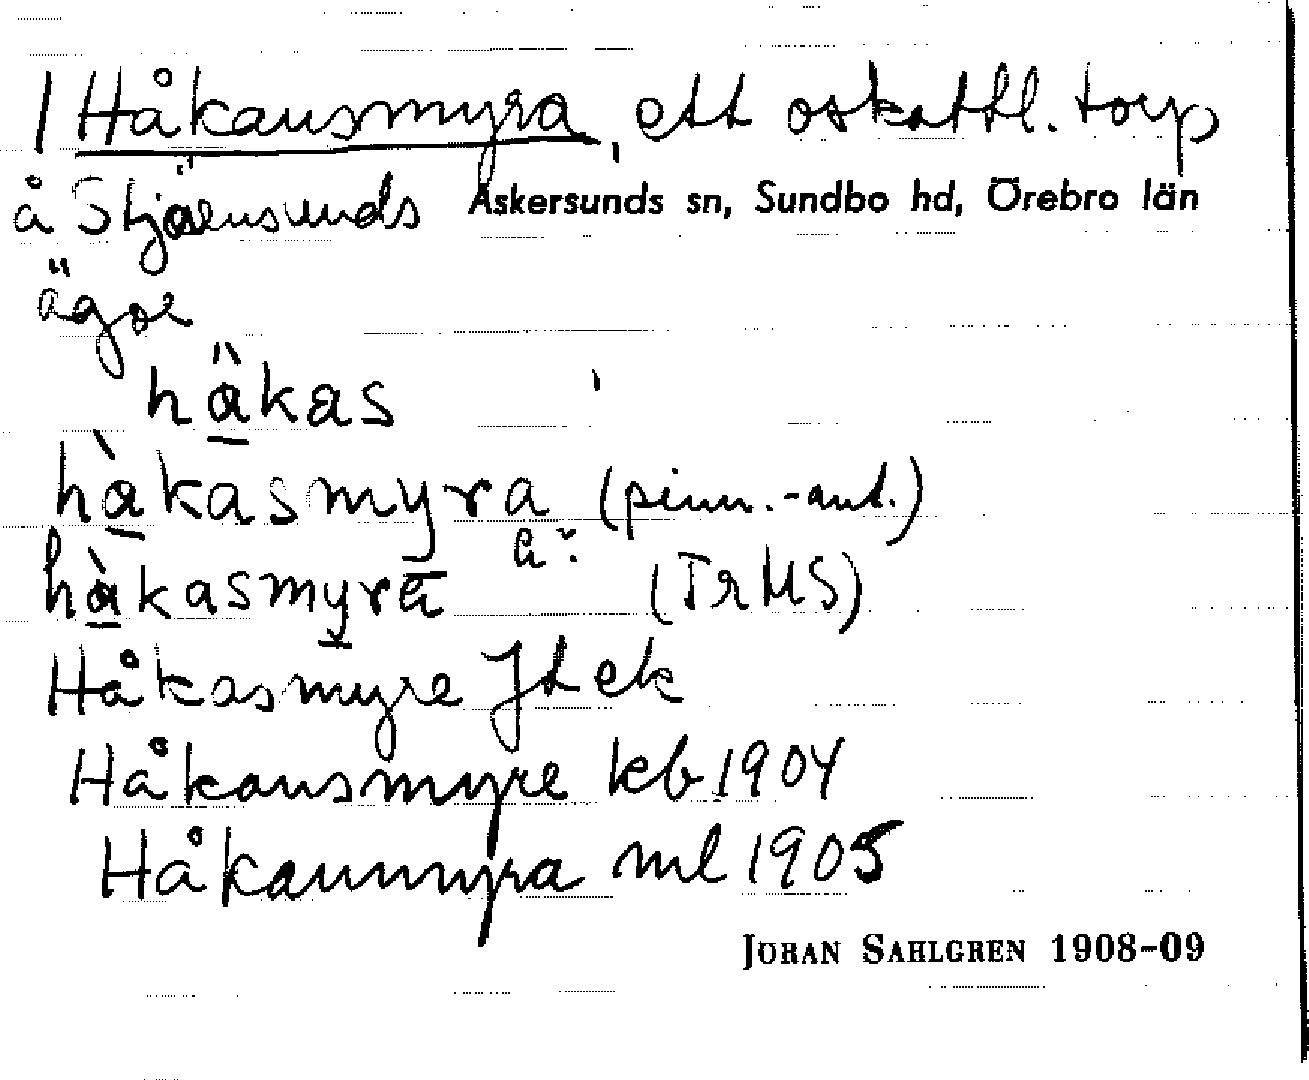 / Håkansmyra, ett oskattl. torp
å Stjärnsunds Askersunds sn, Sundbo hd, Örebro län
ägor
häkas
hàkasmyra (pinn.-ant.)
a
hàkasmyra (TrMS)
Håkasmyre Jt ek
Håkansmyre kb 1904
Håkanmyra ml 1905
JÖRAN SAHLGREN 1908-09